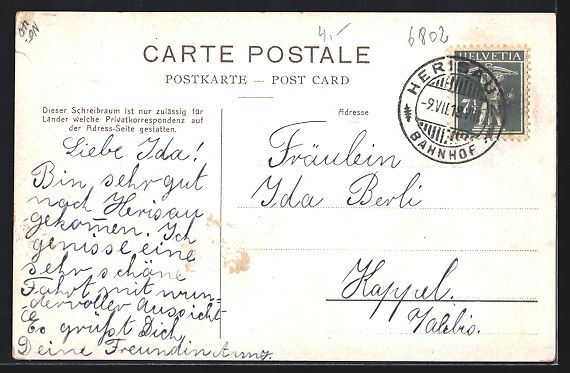 on
-en
4.-
6802
CARTE POSTALE
POSTKARTE — POST CARD
Dieser Schreibraum ist nur zulässig für
Länder welche Privatkorrespondenz auf
der Adress-Seite gestatten.
Adresse
HELVETIA
7½
HERISAU
-9.VII.18
BAHNHOF
Liebe Ida!
Bin sehr gut
nach Herisau
gekom̄en. Ich
genisse eine
sehr schöne
Fahrt mit wun-
dervoller Aussicht
Es grüßt Dich
Deine Freundin Anny.
Fräulein
Ida Berli
Kappel.